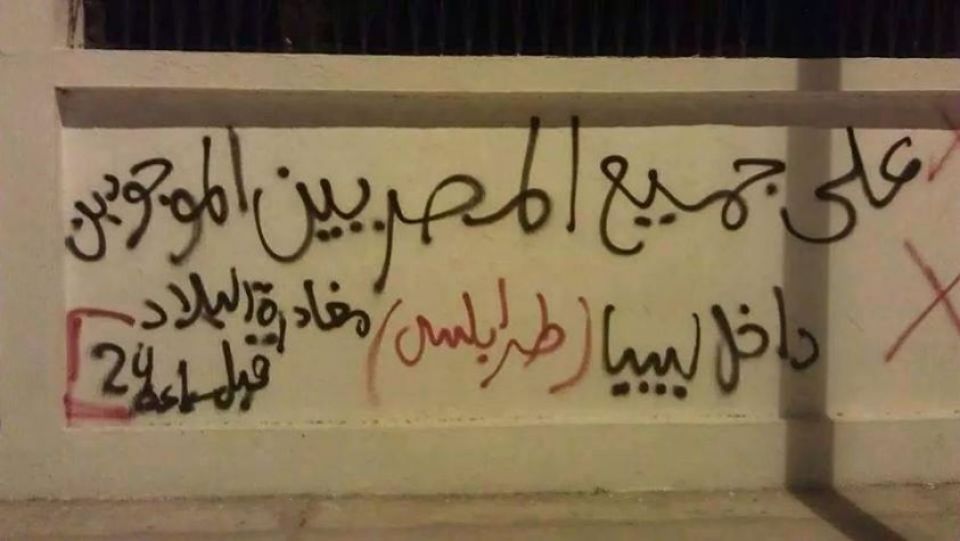 على جميع المصريين الموجودين
داخل ليبيا (طرابلس) مغادرة البلاد
قبل ساعة 24